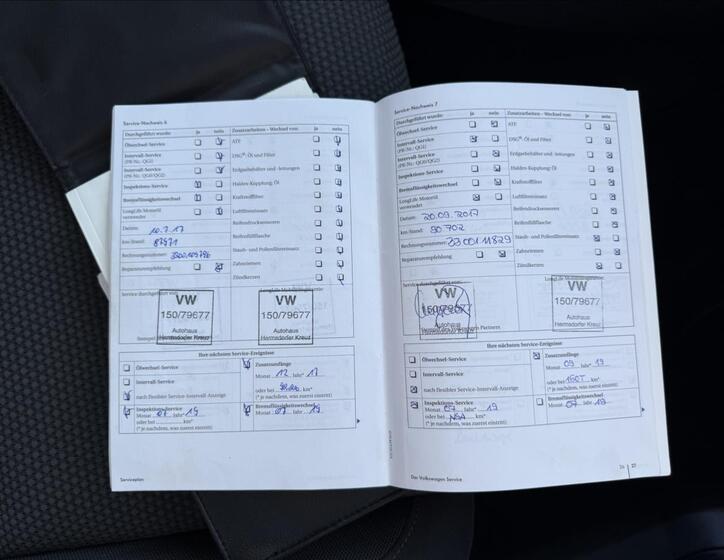 Service-Nachweis 6
Durchgeführt wurde: ja nein
Ölwechsel-Service
Intervall-Service
(PR-Nr. QG1)
Intervall-Service
(PR-Nr. QG0/QG2)
Inspektions-Service
Bremsflüssigkeitswechsel
LongLife Motoröl
verwendet
Datum:
10.7.17
km-Stand:
Rechnungsnummer:
Reparaturempfehlung
Zusatzarbeiten – Wechsel von: ja nein
ATF
DSG®-Öl und Filter
Erdgasbehälter und -leitungen
Haldex-Kupplung: Öl
Kraftstofffilter
Luftfiltereinsatz
Reifendruckssensoren
Reifenfüllflasche
Staub- und Pollenfiltereinsatz
Zahnriemen
Zündkerzen
Service durchgeführt von:
LongLife Mobilitätsgarantie
VW
150/79677
Autohaus
Hermsdorfer Kreuz
VW
150/79677
Autohaus
Hermsdorfer Kreuz
Ihre nächsten Service-Ereignisse
Ölwechsel-Service
Intervall-Service
nach flexibler Service-Intervall-Anzeige
Inspektions-Service
Monat 07 Jahr* 19
oder bei km*
(* je nachdem, was zuerst eintritt)
Zusatzumfänge
Monat 12 Jahr* 17
oder bei km*
(* je nachdem, was zuerst eintritt)
Bremsflüssigkeitswechsel
Monat 07 Jahr 19
Serviceplan
Service-Nachweis 7
Durchgeführt wurde: ja nein
Ölwechsel-Service
Intervall-Service
(PR-Nr. QG1)
Intervall-Service
(PR-Nr. QG0/QG2)
Inspektions-Service
Bremsflüssigkeitswechsel
LongLife Motoröl
verwendet
Datum: 20.09.2017
km-Stand: 90 702
Rechnungsnummer: 23 001 11829
Reparaturempfehlung
Zusatzarbeiten – Wechsel von: ja nein
ATF
DSG®-Öl und Filter
Erdgasbehälter und -leitungen
Haldex-Kupplung: Öl
Kraftstofffilter
Luftfiltereinsatz
Reifendruckssensoren
Reifenfüllflasche
Staub- und Pollenfiltereinsatz
Zahnriemen
Zündkerzen
Service durchgeführt von:
LongLife Mobilitätsgarantie
VW
150/79677
Autohaus
Hermsdorfer Kreuz
VW
150/79677
Autohaus
Hermsdorfer Kreuz
Ihre nächsten Service-Ereignisse
Ölwechsel-Service
Intervall-Service
nach flexibler Service-Intervall-Anzeige
Inspektions-Service
Monat 07 19
oder bei km*
(* je nachdem, was zuerst eintritt)
Zusatzumfänge
Monat 09 Jahr* 19
oder bei km*
(* je nachdem, was zuerst eintritt)
Bremsflüssigkeitswechsel
Monat 07 Jahr 19
Der Volkswagen Service
27